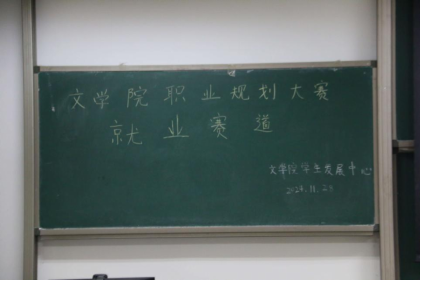 文学院职业规划大赛
就业赛道
文学院学生发展中心
2024.11.23